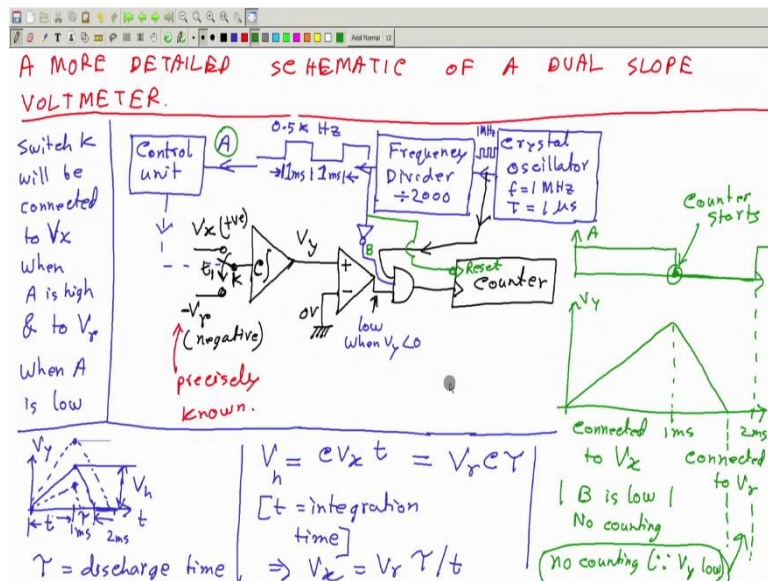 Arial Normal 12
A MORE DETAILED SCHEMATIC OF A DUAL SLOPE
VOLTMETER.
Switch K
will be
connected
to Vx
when
A is high
& to Vr
when A
is low
Control
unit
A
0.5K Hz
1ms 1ms
Frequency
Divider
÷2000
1MHz
Crystal
oscillator
f=1 MHz
T = 1 μs
Vx (+ve)
t1
K
-Vr
(negative)
precisely
known.
e∫
Vy
+
-
0V
B
low
when Vy<0
Reset
Counter
Counter
starts
A
Vy
1ms
2ms
Connected
to Vx
connected
to Vr
B is low
No counting
no counting (∵ Vy low)
Vy
Vh
t
τ
1ms
2ms
t
τ = discharge time
Vh = eVx t = Vr e τ
[t = integration
time]
⇒ Vx = Vr τ/t